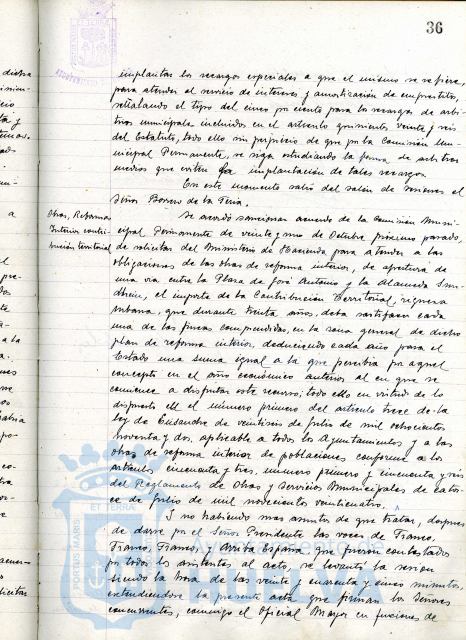 36
implantar los recargos especiales a que el mismo se refiere,
para atender el servicio de intereses y amortización de empréstitos,
señalando el tipo del cinco por ciento para los recargos de arbi-
trios municipales incluidos en el artículo quinientos veinte y seis
del Estatuto, todo ello sin perjuicio de que por la Comisión Mu-
nicipal Permanente, se siga estudiando la forma de arbitrar
medios que eviten la implantación de tales recargos.
En este momento salió del salón de sesiones el
Señor Borrero de la Feria.
Obras, Reformas
Interior contri-
bución territorial
Se acordó sancionar acuerdo de la Comisión Muni-
cipal Permanente de veintiuno de Octubre próximo pasado,
de solicitar del Ministerio de Hacienda para atender a las
obligaciones de las obras de reforma interior, de apertura de
una vía entre la Plaza de José Antonio y la Alameda Sun-
dheim, el importe de la Contribución Territorial, riqueza
urbana, que durante treinta años, deba satisfacer cada
una de las fincas comprendidas, en la zona general de dicho
plan de reforma interior, deduciendo cada año para el
Estado una suma igual a la que percibía por aquel
concepto en el año económico anterior al en que se
comience a disfrutar este recurso; todo ello en virtud de lo
dispuesto en el número primero del artículo trece de la
ley de Ensanche de veintiséis de Julio de mil ochocientos
noventa y dos, aplicable a todos los Ayuntamientos y a las
obras de reforma interior de poblaciones conforme a los
artículos cincuenta y tres, número primero y cincuenta y seis
del Reglamento de Obras y Servicios Municipales de cator-
ce de Julio de mil novecientos veinticuatro.
Y no habiendo mas asuntos de que tratar, despues
de darse por el Señor Presidente las voces de Franco,
Franco, Franco, y Arriba España que fueron contestados
por todos los asistentes al acto, se levantó la sesión
siendo la hora de las veinte y cuarenta y cinco minutos,
extendiendose la presente acta que firman los Señores
concurrentes, conmigo el Oficial Mayor en funciones de
PORTUS MARIS
ET TERRAE